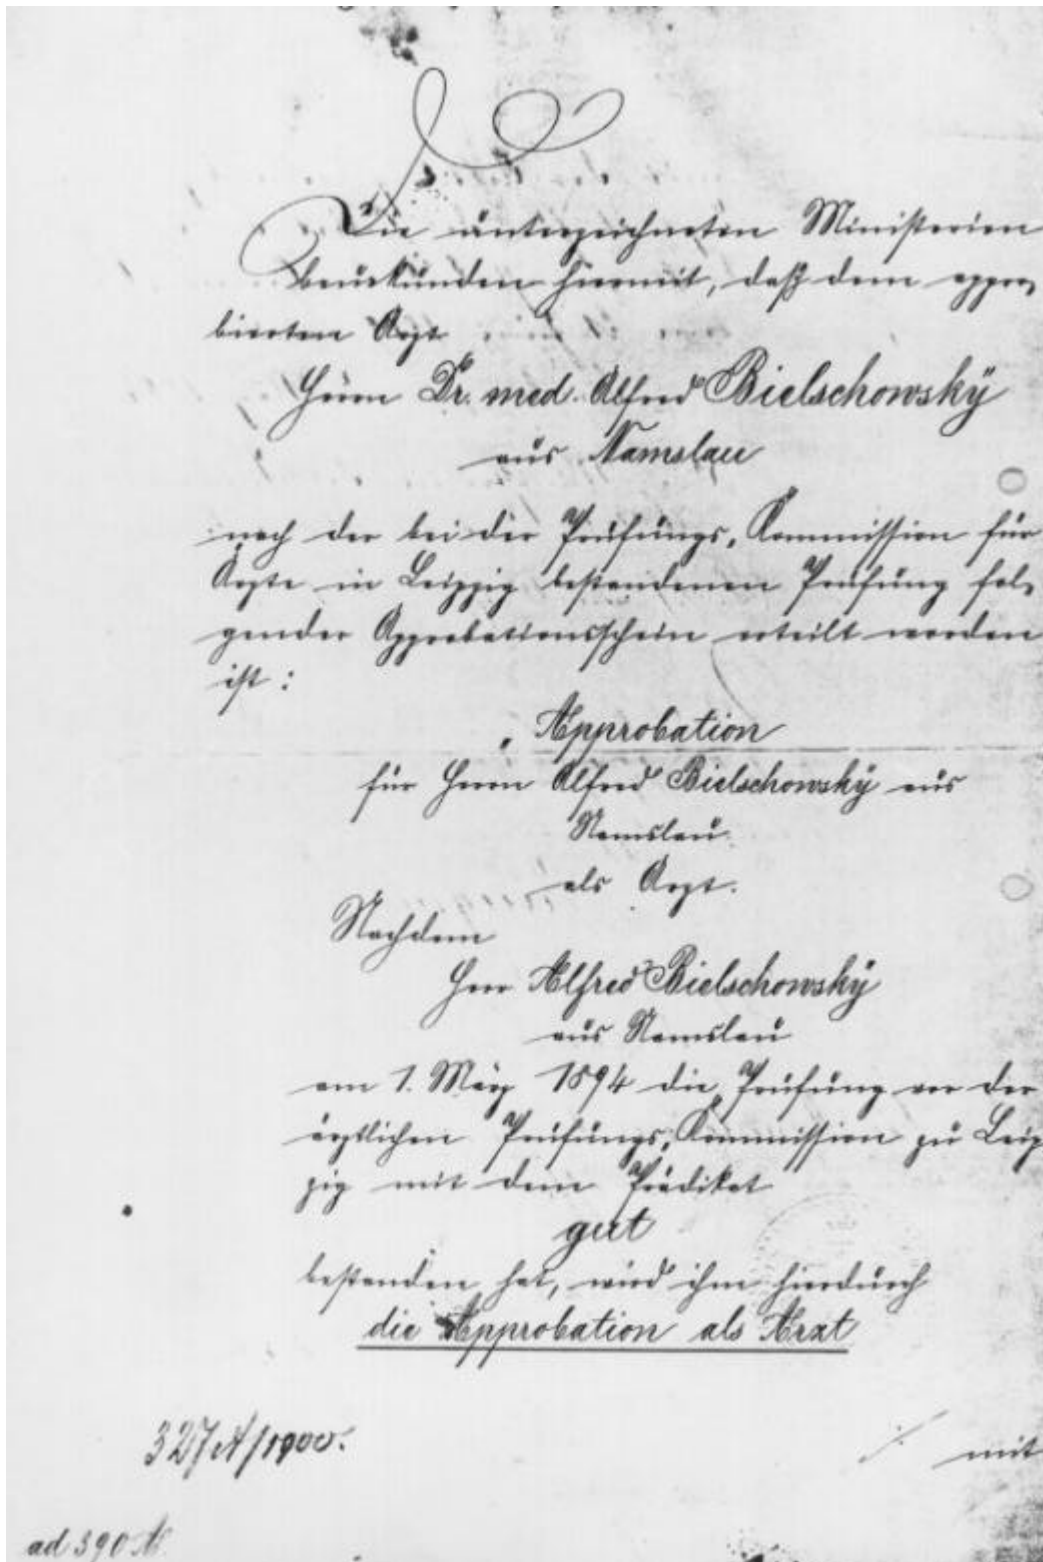 Die unterzeichneten Ministerien
beurkunden hiermit, daß dem appro-
bierten Arzt
Herrn Dr. med. Alfred Bielschowsky
aus Namslau
nach der bei der Prüfungs-Kommission für
Ärzte in Leipzig bestandenen Prüfung fol-
gender Approbationsschein erteilt worden
ist:
„Approbation
für Herrn Alfred Bielschowsky aus
Namslau
als Arzt.
Nachdem
Herr Alfred Bielschowsky
aus Namslau
am 1. März 1894 die Prüfung vor der
ärztlichen Prüfungs-Kommission zu Leip-
zig mit dem Prädikat
gut
bestanden hat, wird ihm hierdurch
die Approbation als Arzt
327 A/1900.
mit
ad 390 M.